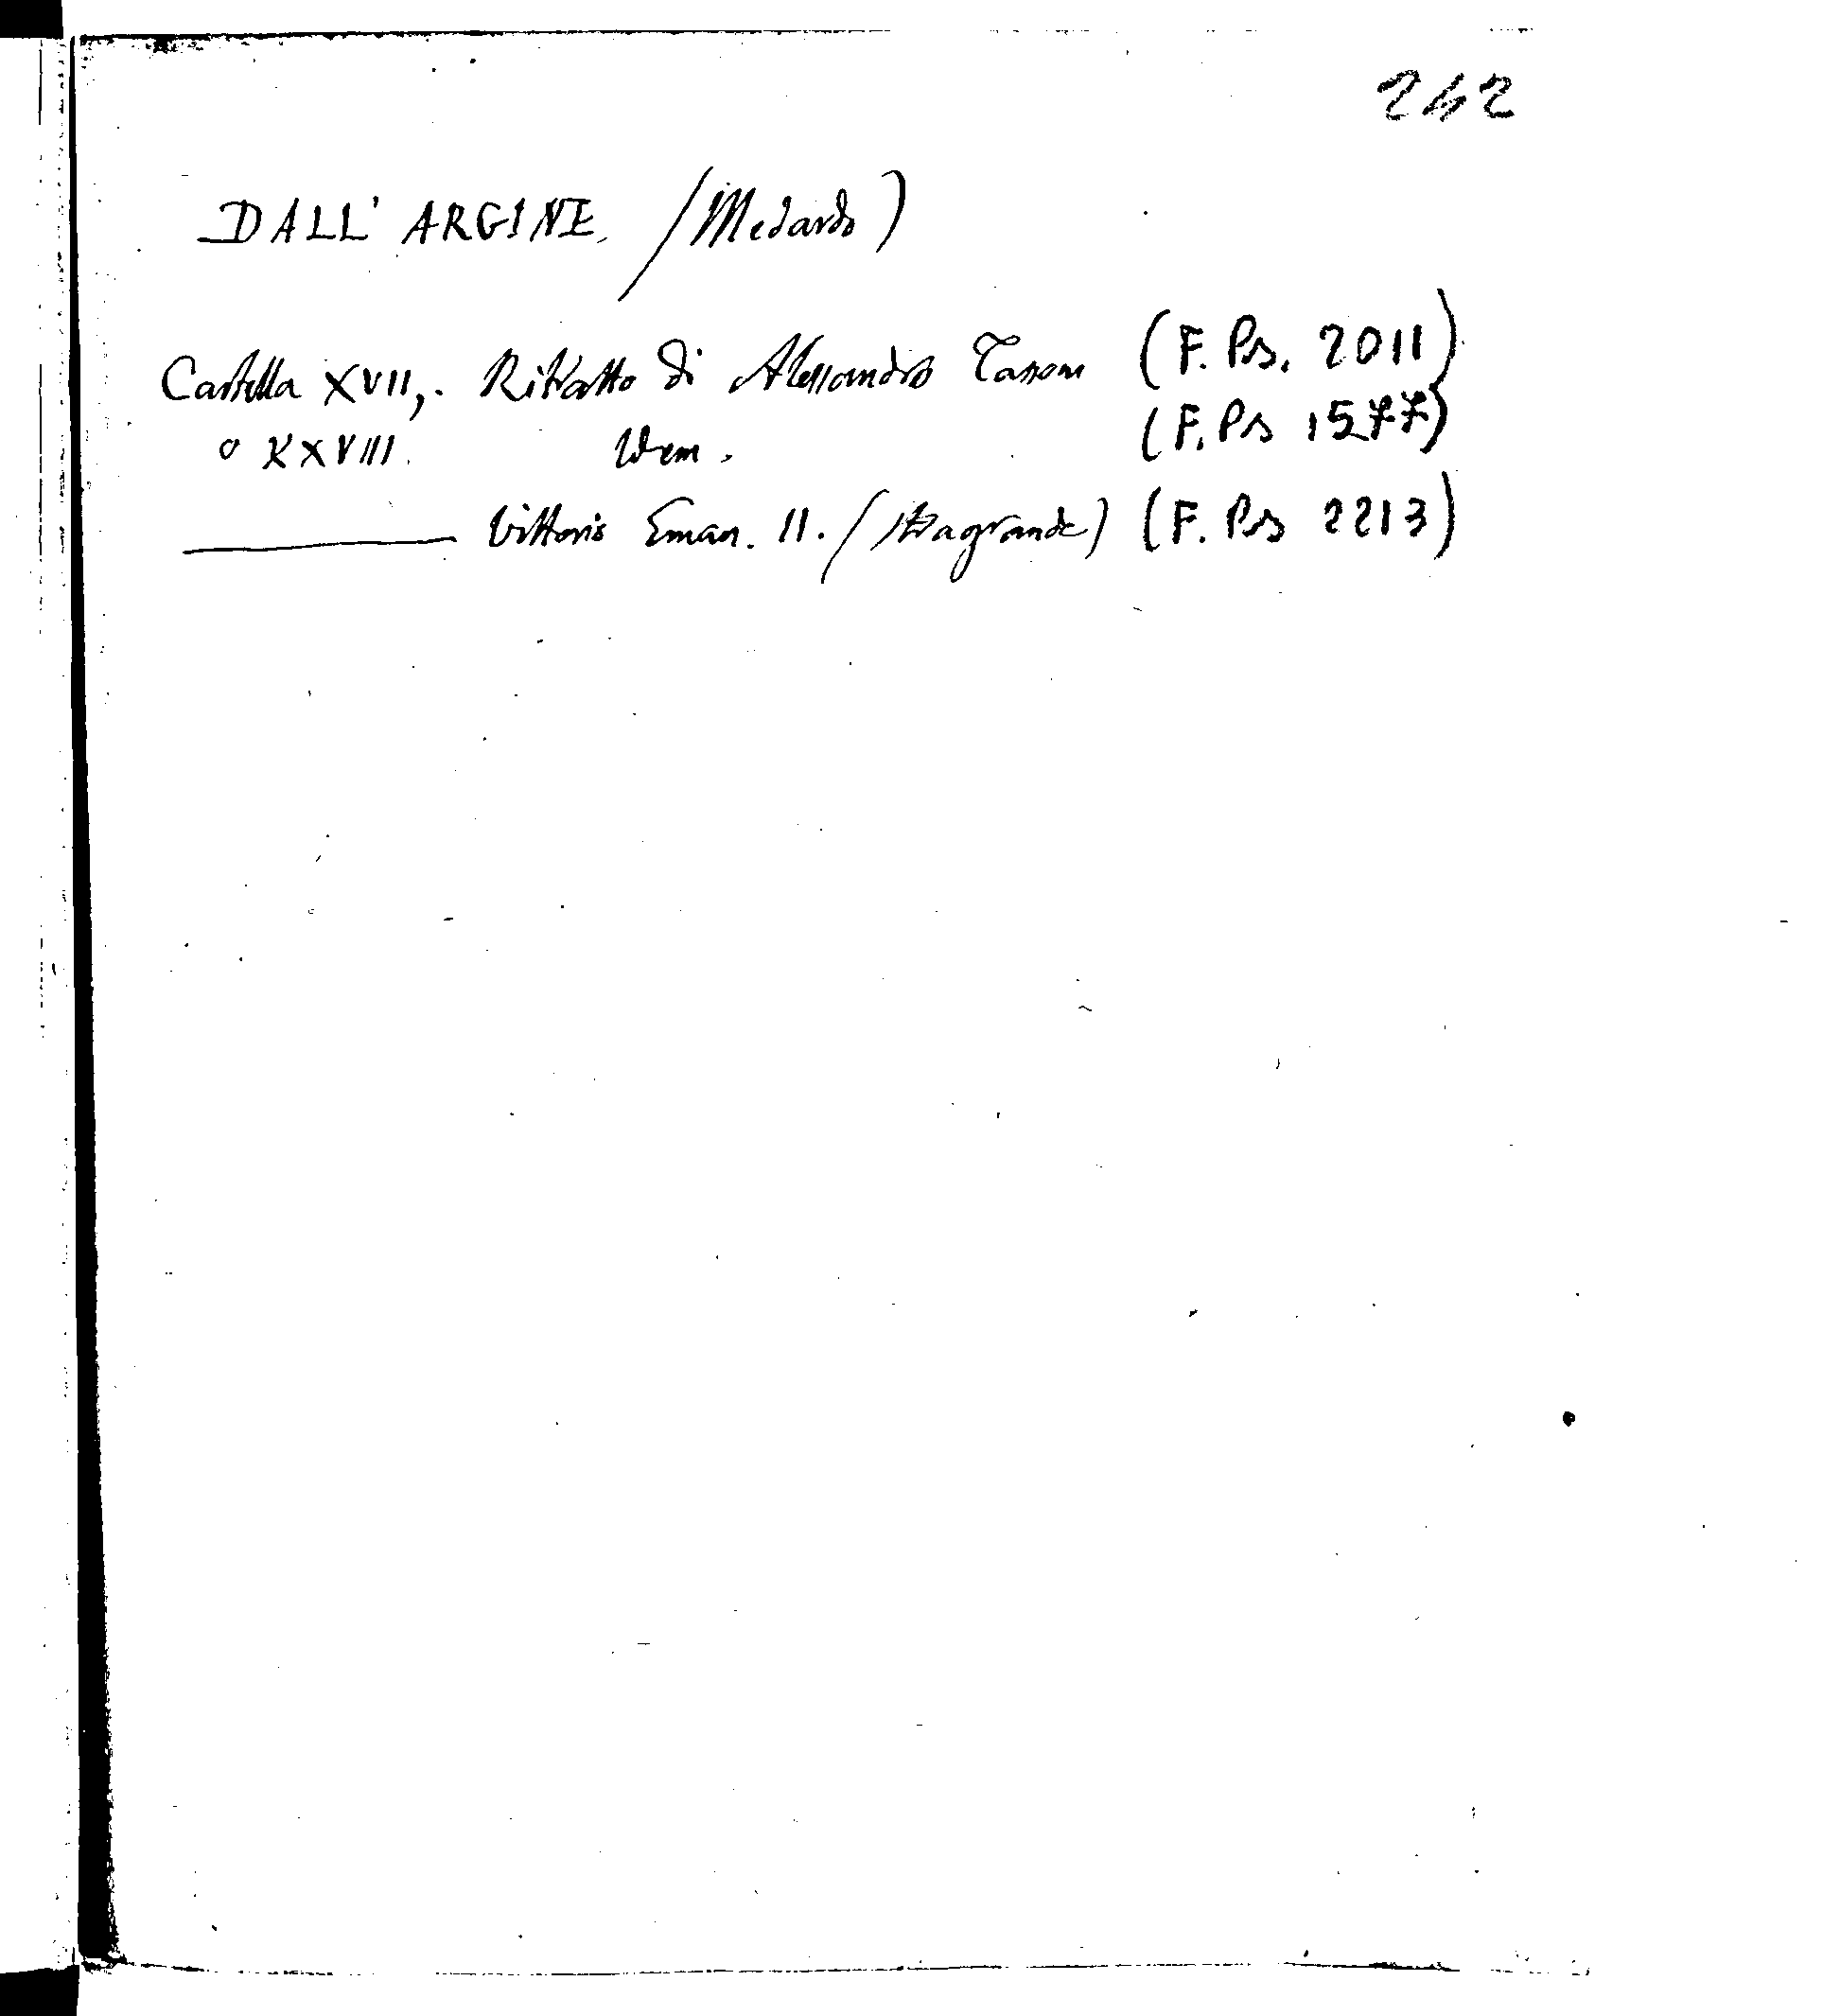 242
DALL' ARGINE. (Medardo)
Cartella XVII,. Ritratto di Alessandro Tassoni (F. Ps. 2011)
o XXVIII. Idem. (F. Ps 1577)
Vittorio Eman. II. (Stragrande) (F. Ps 2213)